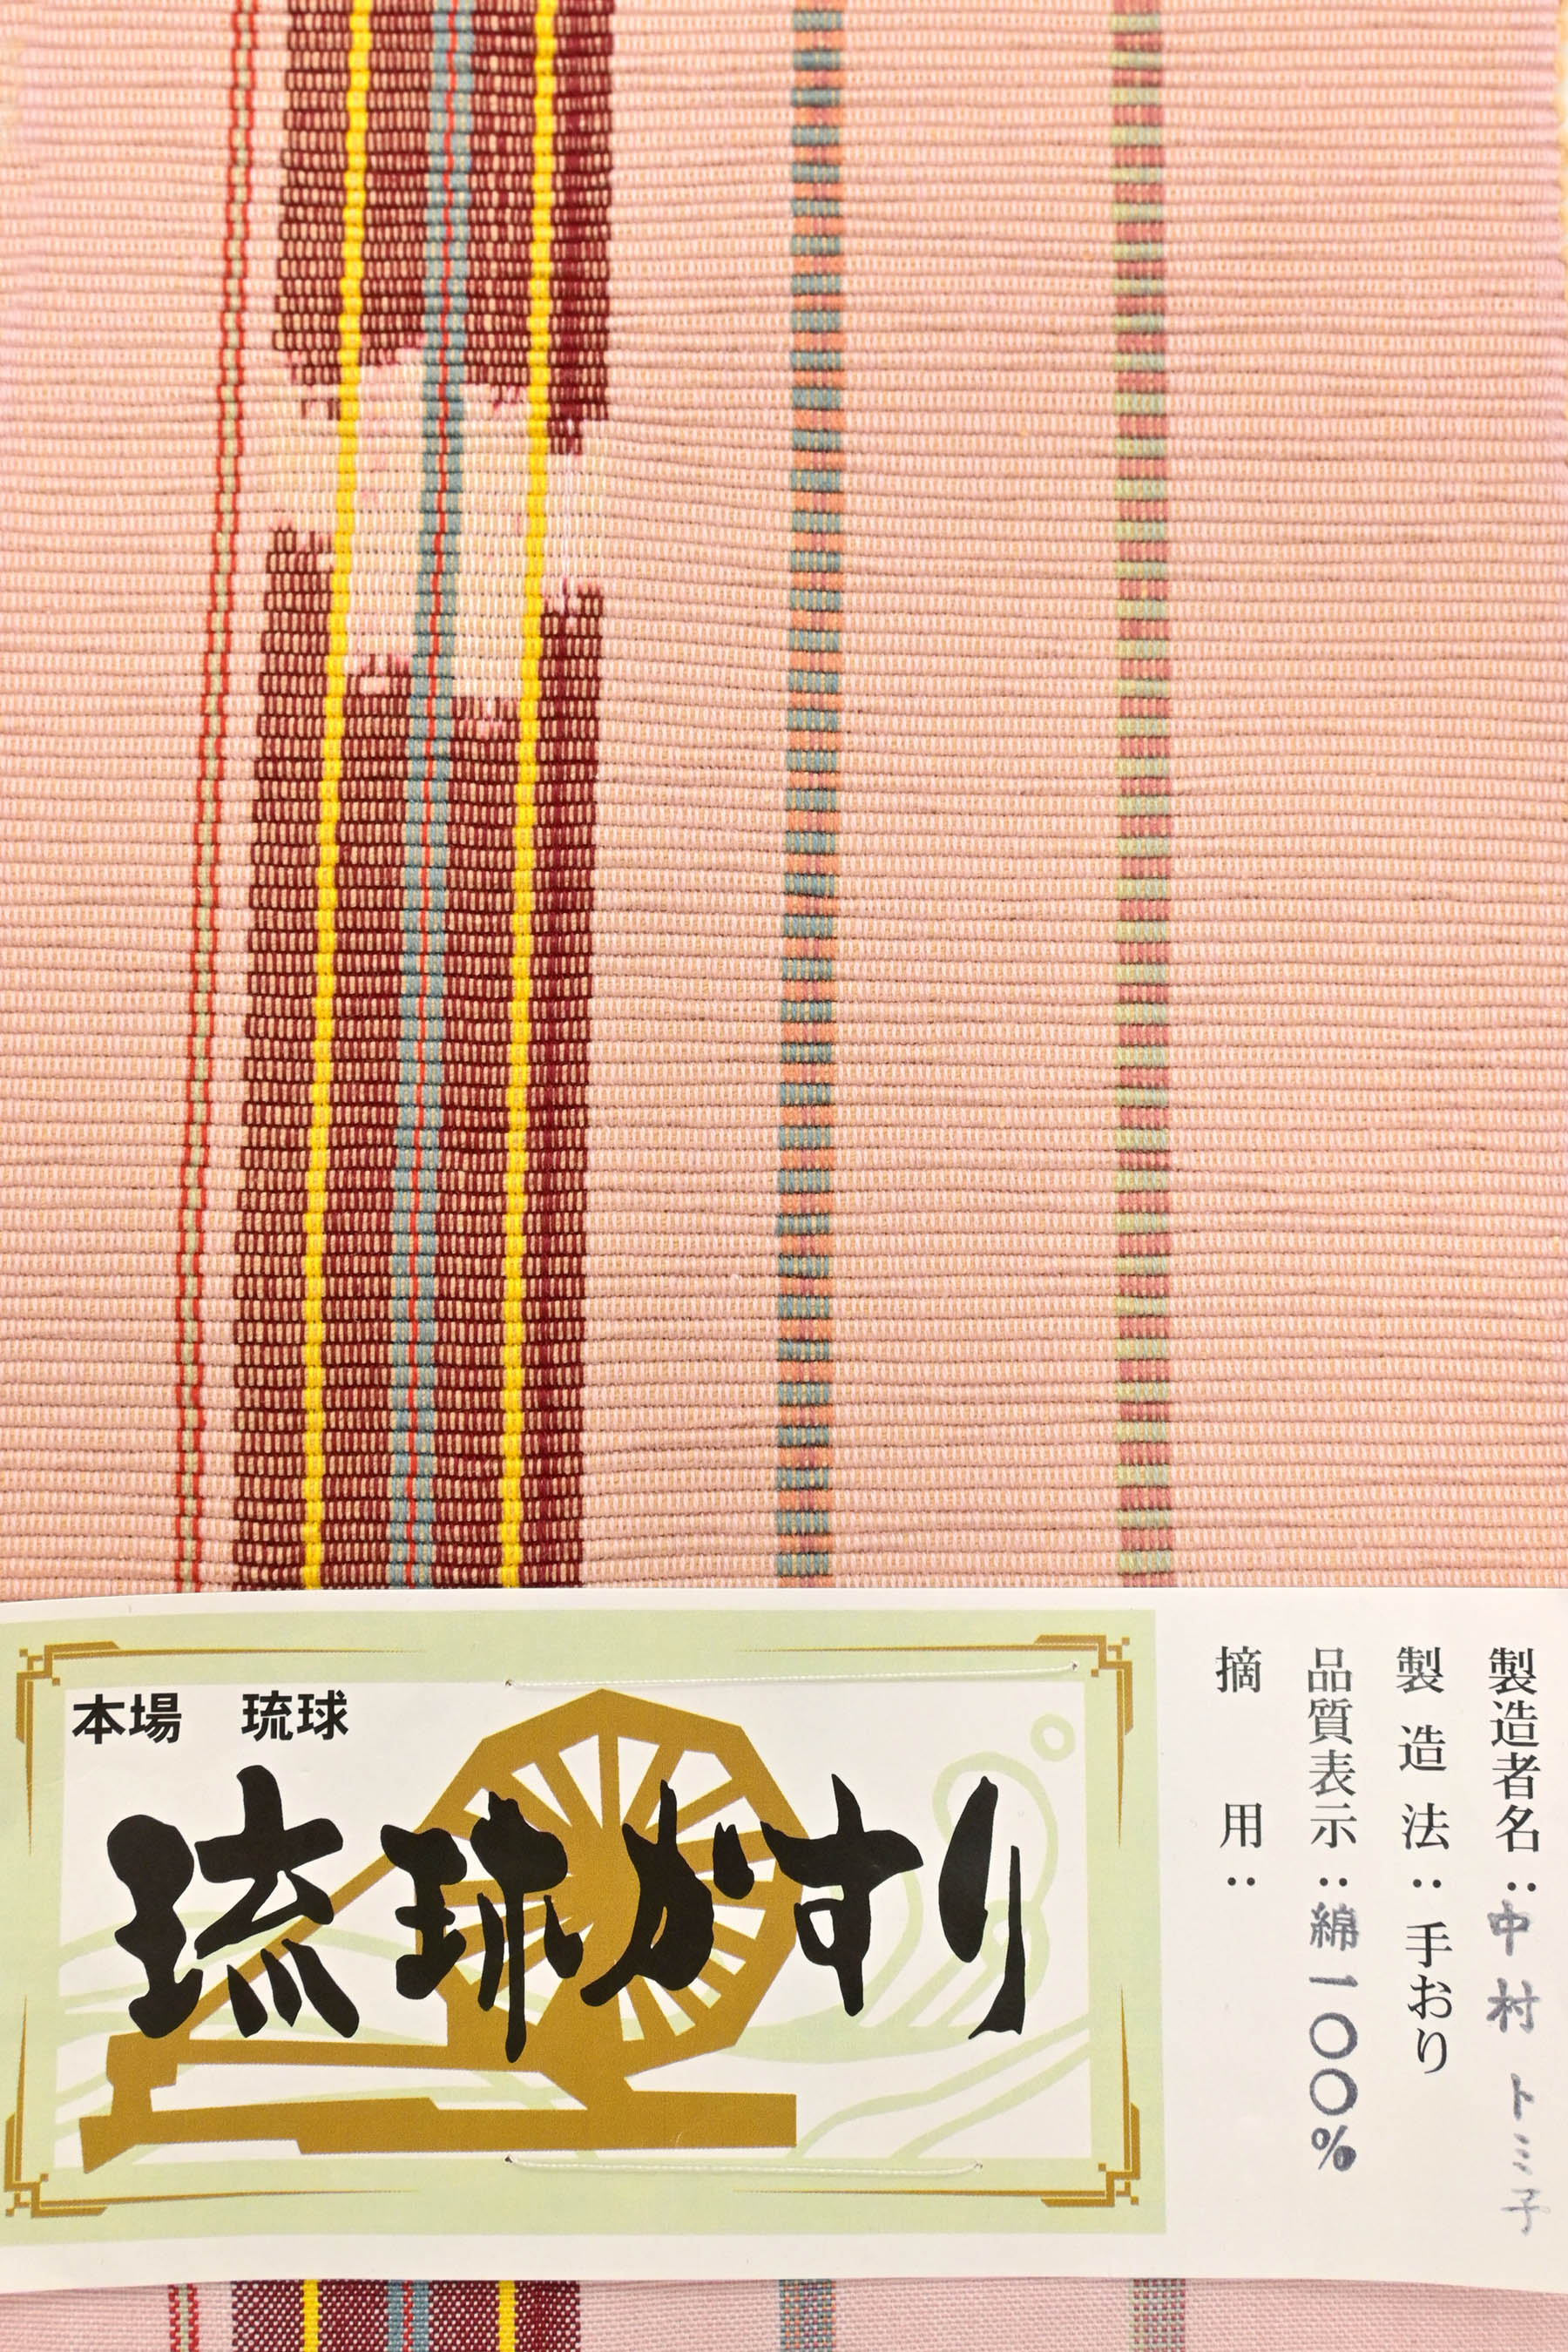 本場 琉球
琉球がすり
製造者名：中村 トミ子
製造法：手おり
品質表示：綿一〇〇%
摘用：